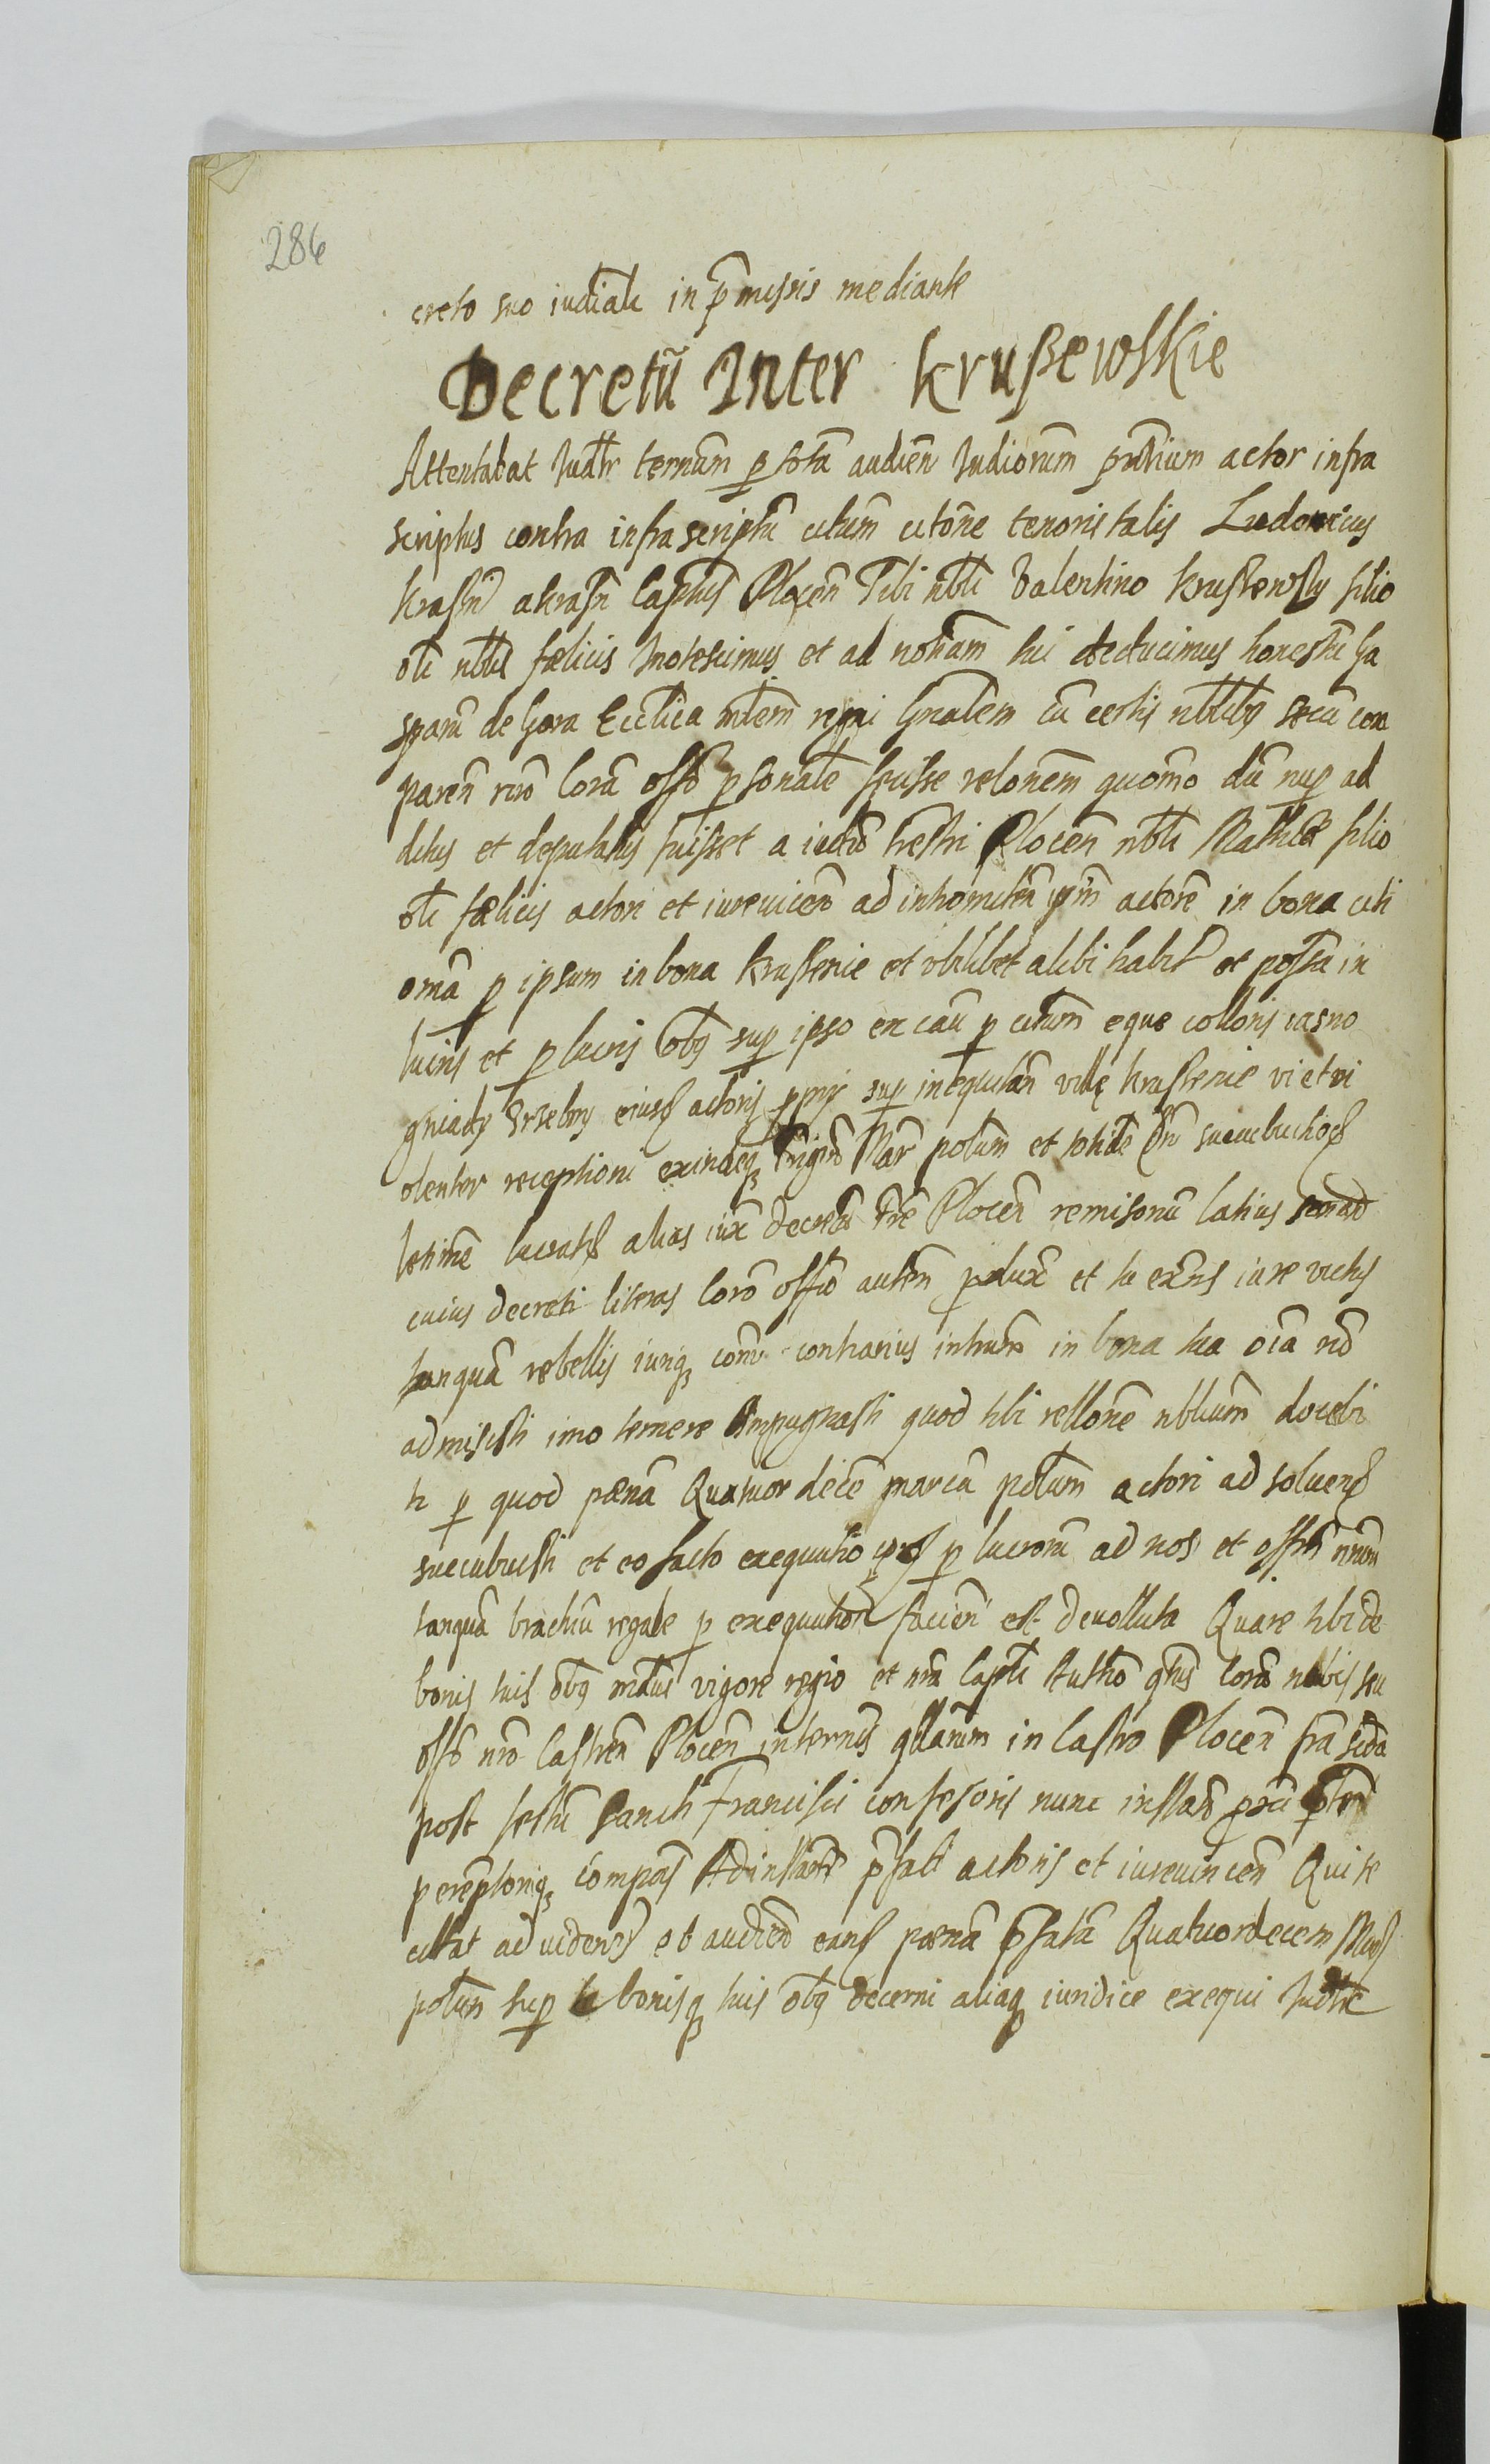 286
creto suo iudiciale in p̃missis mediante
Decretũ Inter Krußewskie
Attentabat Judr̃ ternum̃ p totã audieñ Judiorum̃ pñtium actor infra
scriptus contra infra scriptũ citum̃ citoñe tenoris talis Ludovicus
Krasiñ a Krasñ Capteus Plocen̄ Tibi nbli Valentino Krussewsky filio
oli nblis fœlicis Innotescimus et ad notiam̃ tui deducimus honestũ Ga
sparũ de Gora Ecclica mlem̃ regni Gnalem̃ cũ certis nblibꝫ secũ com
paren̄ rũo Corã offo p̱sonalr fecisse relonem̃ quomo dũ nup̱ ad
ditus et deputatus fuisset a iudio trestri Plocen̄ nbli Mathiæ filio
oli fœlicis actori et iurevicen̄ ad intromiten̄ ipm̃ actorẽ in bona citi
omã p̱ ipsum in bona Krussenie et ubilibet alibi habit et possa in
lucris et p̱ lucris obꝫ sup̱ ipso ex cau p̱ citum̃ eque colloris iasno
gniady srzebny eiusđ actoris p̱prij sup̱ inequitañ villę Krussenie vi et vi
olenter receptioni exindeqꝫ Mar̃ polum̃ et totidẽ succubuitioẽ
lucratis alias iux̃ decretũ Tre Plocen̄ remisonũ latius
cuius decreti literas Corã offo auten̄ p̱duxi et tu exñs iure victus
tanquã rebellis iuriqꝫ com̃ contrarius intromĩ in bona tua oĩa nõ
admisisti imo temere impugnasti quod tibi relloñe nblium̃ docebi
tr p̱ quod pœnã Quatuordecẽ marcã polum̃ actori ad solvenđ
succubuisti et eo facto exequutio ipsã p̱ lucrorũ ad nos et offm̃ nrum̃
tanquã brachiũ regale p̱ exequutioñ facien̄ est devolluta Quare tibi de
bonis tuis obꝫ mdmus vigore regio et nrã Captli Authõ qtus Corã nobis seu
offo nro Castren̄ Plocen̄ in ternis qllarum̃ in Castro Plocen̄ fra scda
post festũ Sancti Francisci confesoris nunc instañ
perem̃ptorieqꝫ compas Ad instantĩ p̃fati actoris et iurevincen̄ Qui te
citat ad videnđ et audiẽ eanđ pœnã p̃fatã Quatuordecem Mar
polum̃ sup̱ te bonisqꝫ tuis obꝫ decerni aliaqꝫ iuridice exequi Judlr